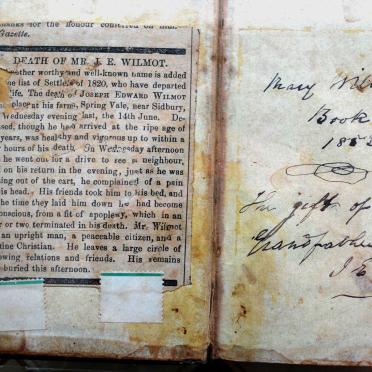 thanks for the honour conferred on him.
Gazette.
DEATH OF MR. J. E. WILMOT.
other worthy and well-known name is added
e list of Settlers of 1820, who have departed
life. The death of JOSEPH EDWARD WILMOT
place at his farm, Spring Vale, near Sidbury,
Wednesday evening last, the 14th June. De-
sed, though he had arrived at the ripe age of
years, was healthy and vigorous up to within a
hours of his death. On Wednesday afternoon
he went out for a drive to see a neighbour,
on his return in the evening, just as he was
ing out of the cart, he complained of a pain
is head. His friends took him to his bed, and
the time they laid him down he had become
onscious, from a fit of apoplexy, which in an
r or two terminated in his death. Mr. Wilmot
an upright man, a peaceable citizen, and a
ine Christian. He leaves a large circle of
wing relations and friends. His remains
buried this afternoon.
Mary Wil
Book
185
The gift of
Grandfathe
J E